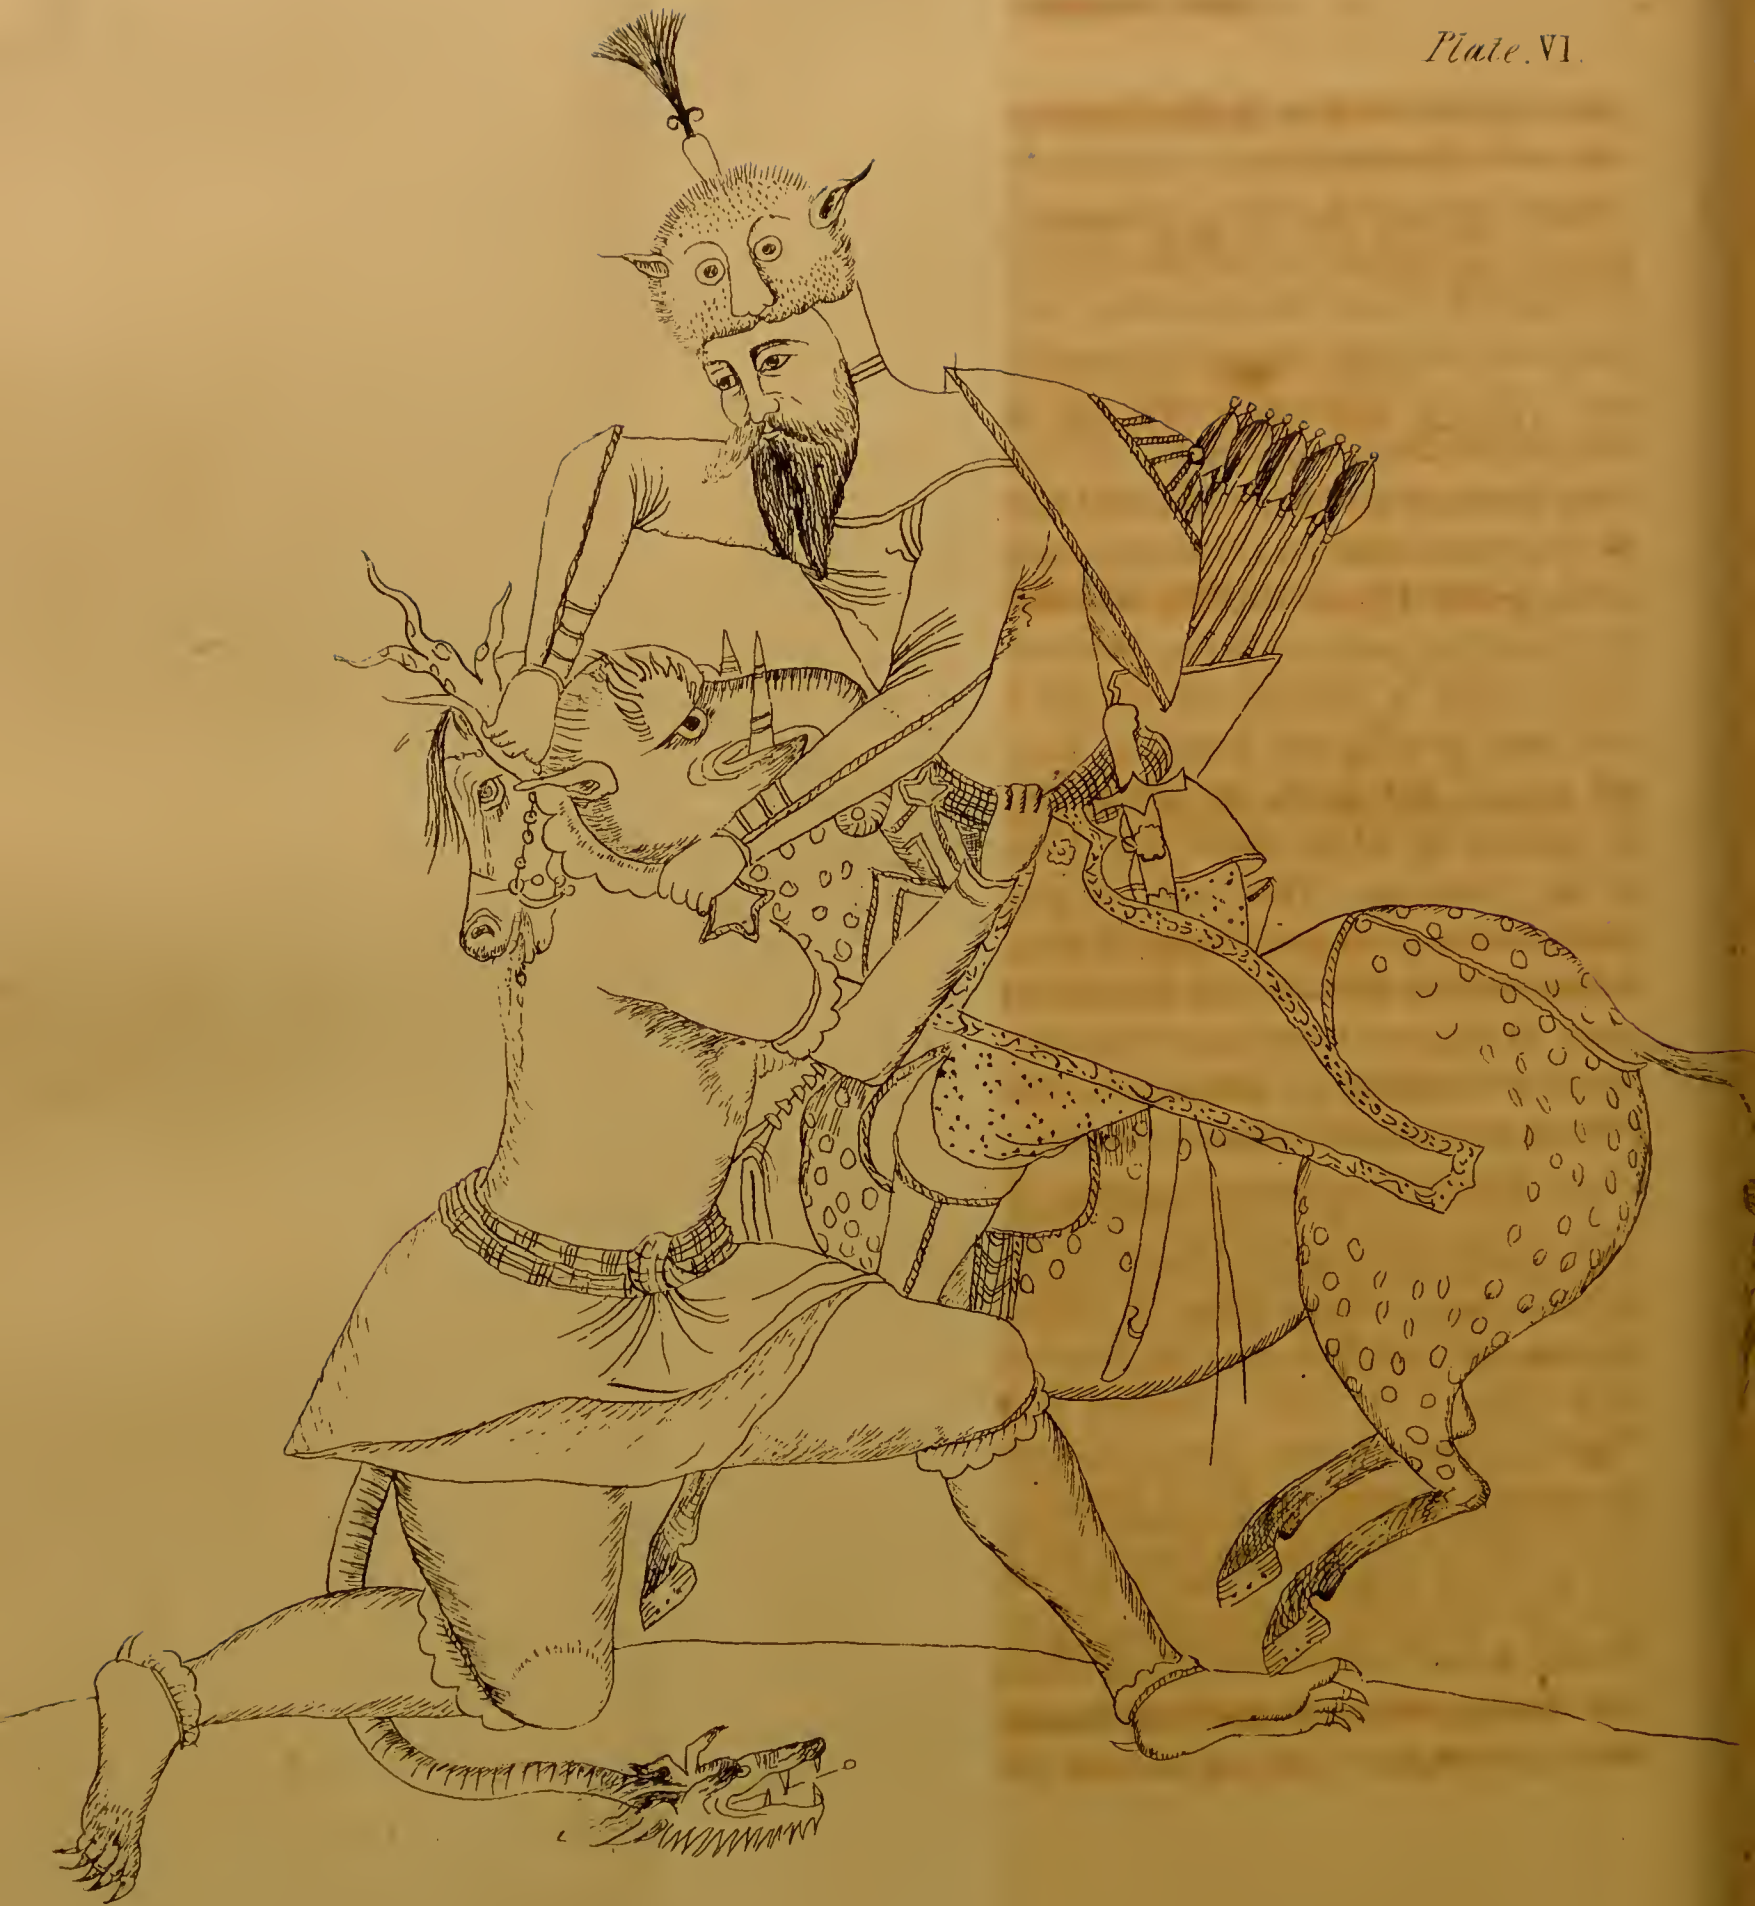 Plate. VI.